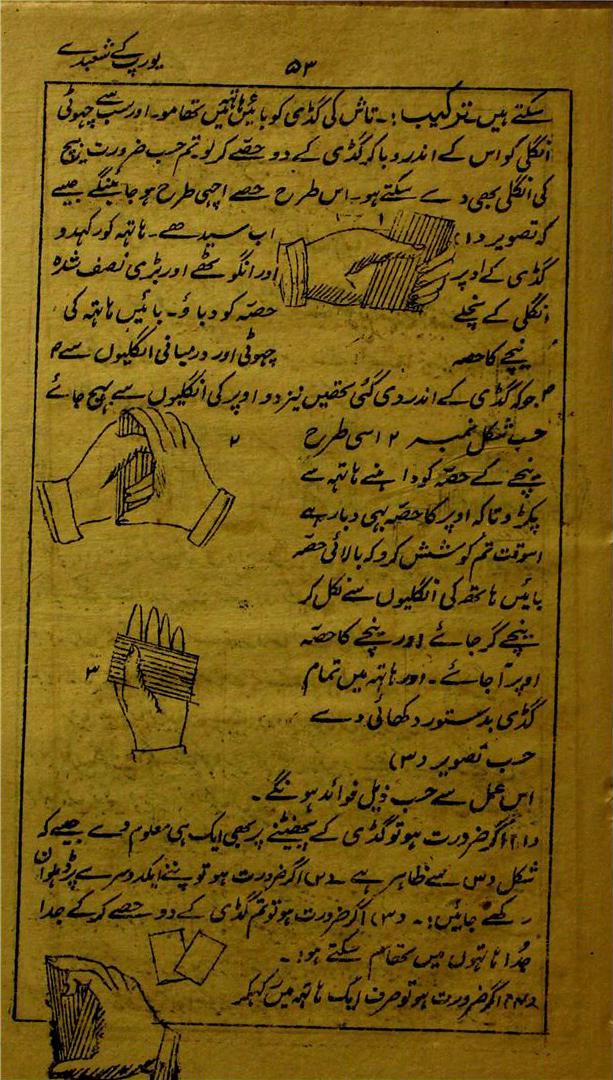 یورپ کے شعبدے
۵۳
سکتے ہیں۔ ترکیب :۔ تاش کی گڈی کو بائیں ہاتھ میں تھامو۔ اور سب سے چھوٹی
انگلی کو اس کے اندر دبا کر گڈی کے دو حصے کر لو۔ تم حسب ضرورت بیچ
کی انگلی بھی دے سکتے ہو۔ اس طرح حصے اچھی طرح ہو جائینگے جیسے
کہ تصویر (۱) ۱ اب سیدھے ہاتہہ کو رکھدو
گڈی کے اوپر اور انگوٹھے اور بڑی نصف شدہ
انگلی کے نیچے حصہ کو دباؤ۔ بائیں ہاتہہ کی
نیچے کا حصہ چھوٹی اور درمیانی انگلیوں سے م
م جو کہ گڈی کے اندر دی گئی تھیں نیز دو اوپر کی انگلیوں سے پہنچ جائے
حسب شکل نمبر ۲ اسی طرح ۲
نیچے کے حصہ کو داہنے ہاتہہ سے
پکڑو تاکہ اوپر کا حصہ بھی دبا رہے
اسوقت تم کوشش کرو کہ بالائی حصہ
بائیں ہاتھ کی انگلیوں سے نکل کر
نیچے گر جائے اور نیچے کا حصہ
اوپر آ جائے۔ اور ہاتہہ میں تمام ۳
گڈی بدستور دکھائی دے
حسب تصویر (۳)
اس عمل سے حسب ذیل فوائد ہونگے۔
(۱) اگر ضرورت ہو تو گڈی کے پھینٹنے پر بھی ایک ہی معلوم دے جیسے کہ
شکل (۳) سے ظاہر ہے (۲) اگر ضرورت ہو تو پتے ایک دوسرے پر
رکھے جائیں :۔ (۳) اگر ضرورت ہو تو تم گڈی کے دو حصے کر کے جدا
جدا ہاتہوں میں تھام سکتے ہو :۔
(۴) اگر ضرورت ہو تو صرف ایک ہاتہہ میں رکھکر